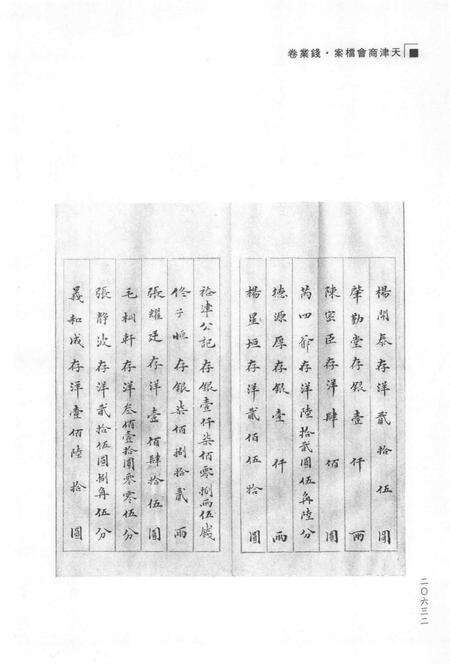 天津商會檔案·錢業卷
楊開泰存洋貳拾伍圓
肇勤堂存銀壹仟兩
陳寶臣存洋肆佰圓
芮四爺存洋陸拾貳圓伍角陸分
德源厚存銀壹仟兩
楊星垣存洋貳佰伍拾圓
裕津公記存銀壹仟柒佰零捌兩伍錢
佟子恒存銀柒佰捌拾貳兩
張耀廷存洋壹佰肆拾伍圓
毛桐軒存洋叁佰壹拾圓零零伍分
張靜波存洋貳拾伍圓捌角伍分
義和成存洋壹佰陸拾圓
二〇六三二